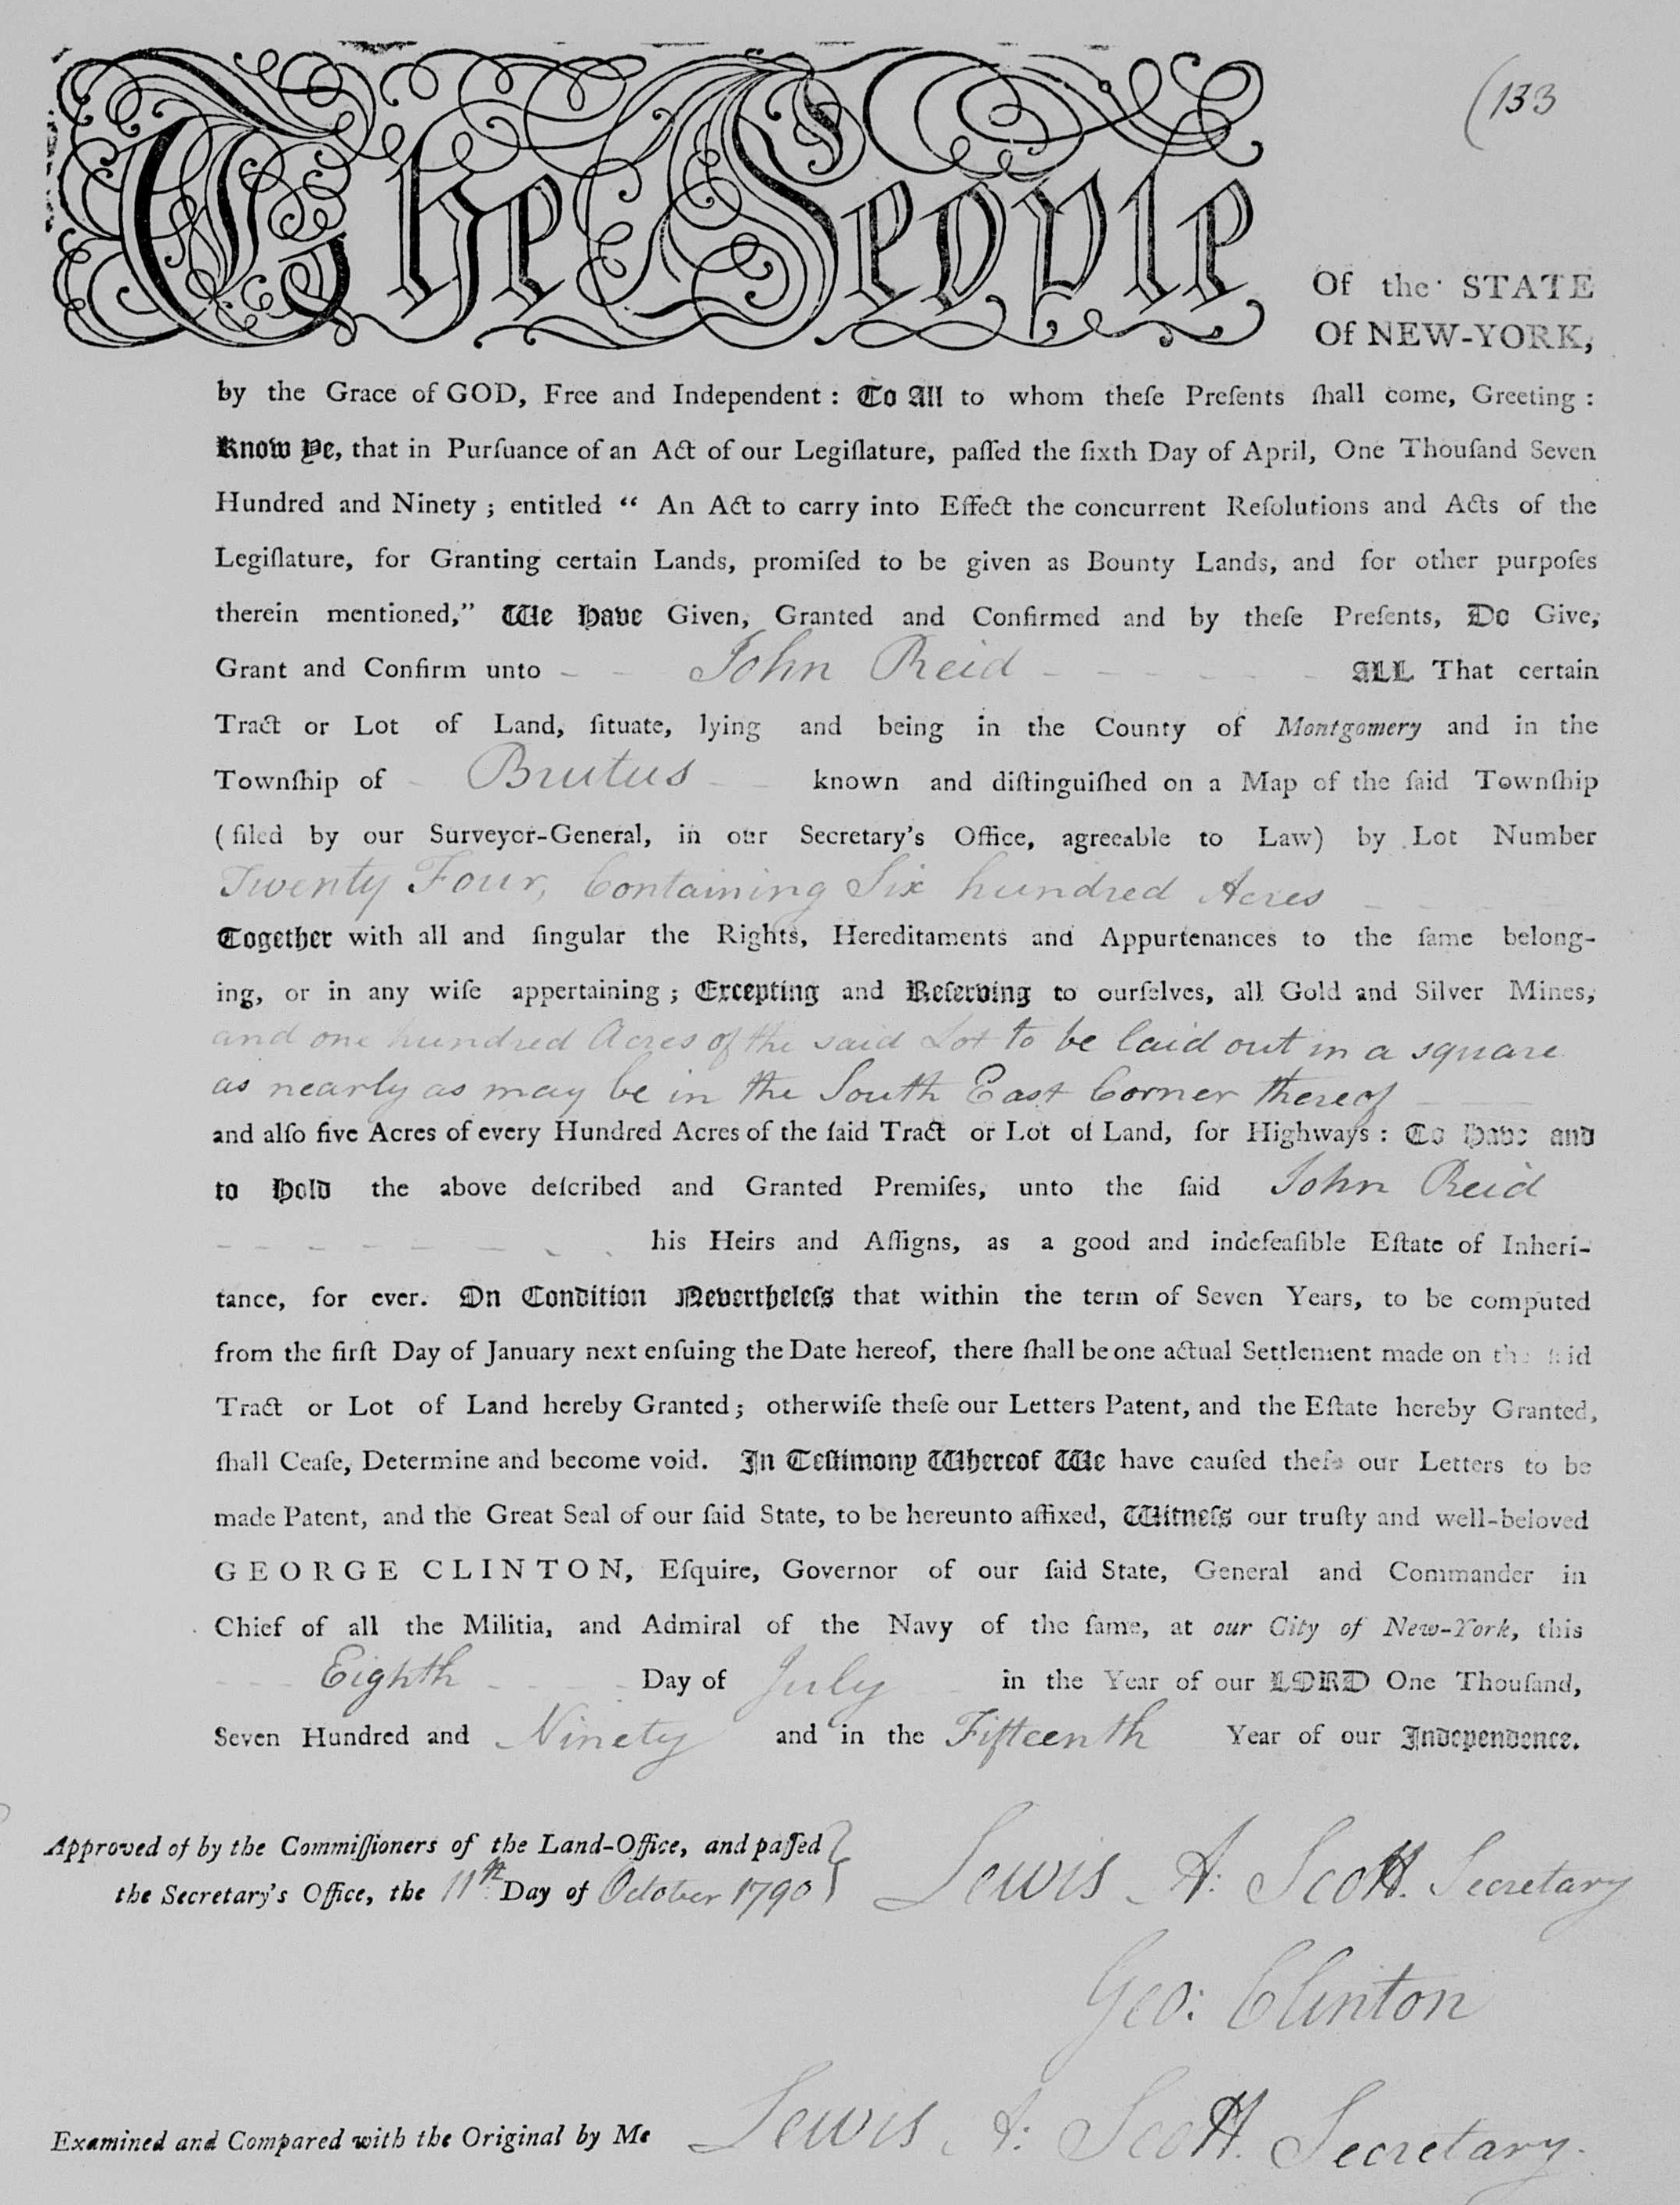 (133
The People
Of the STATE
Of NEW-YORK,
by the Grace of GOD, Free and Independent : To All to whom theſe Preſents ſhall come, Greeting :
Know Ye, that in Purſuance of an Act of our Legiſlature, paſſed the ſixth Day of April, One Thouſand Seven
Hundred and Ninety ; entitled “ An Act to carry into Effect the concurrent Reſolutions and Acts of the
Legiſlature, for Granting certain Lands, promiſed to be given as Bounty Lands, and for other purpoſes
therein mentioned,” We Have Given, Granted and Confirmed and by theſe Preſents, Do Give,
Grant and Confirm unto - - John Reid - - - - - - ALL That certain
Tract or Lot of Land, ſituate, lying and being in the County of Montgomery and in the
Townſhip of - Brutus - - known and diſtinguiſhed on a Map of the ſaid Townſhip
( filed by our Surveyor-General, in our Secretary’s Office, agreeable to Law) by Lot Number
Twenty Four, Containing Six hundred Acres
Together with all and ſingular the Rights, Hereditaments and Appurtenances to the ſame belong-
ing, or in any wiſe appertaining ; Excepting and Reſerving to ourſelves, all Gold and Silver Mines,
and one hundred Acres of the said Lot to be laid out in a square
as nearly as may be in the South East Corner thereof
and alſo five Acres of every Hundred Acres of the ſaid Tract or Lot of Land, for Highways : To Have and
to Hold the above deſcribed and Granted Premiſes, unto the ſaid John Reid
- - - - - - - - - his Heirs and Aſſigns, as a good and indefeaſible Eſtate of Inheri-
tance, for ever. On Condition Nevertheleſs that within the term of Seven Years, to be computed
from the firſt Day of January next enſuing the Date hereof, there ſhall be one actual Settlement made on the ſaid
Tract or Lot of Land hereby Granted ; otherwiſe theſe our Letters Patent, and the Eſtate hereby Granted,
ſhall Ceaſe, Determine and become void. In Teſtimony Whereof We have cauſed theſe our Letters to be
made Patent, and the Great Seal of our ſaid State, to be hereunto affixed, Witneſs our truſty and well-beloved
GEORGE CLINTON, Eſquire, Governor of our ſaid State, General and Commander in
Chief of all the Militia, and Admiral of the Navy of the ſame, at our City of New-York, this
- - - Eighth - - - - Day of July - in the Year of our LORD One Thouſand,
Seven Hundred and Ninety and in the Fifteenth Year of our Independence.
Approved of by the Commiſſioners of the Land-Office, and paſſed
the Secretary’s Office, the 11th Day of October 1790 } Lewis A: Scott. Secretary
Geo: Clinton
Examined and Compared with the Original by Me Lewis A: Scott. Secretary.